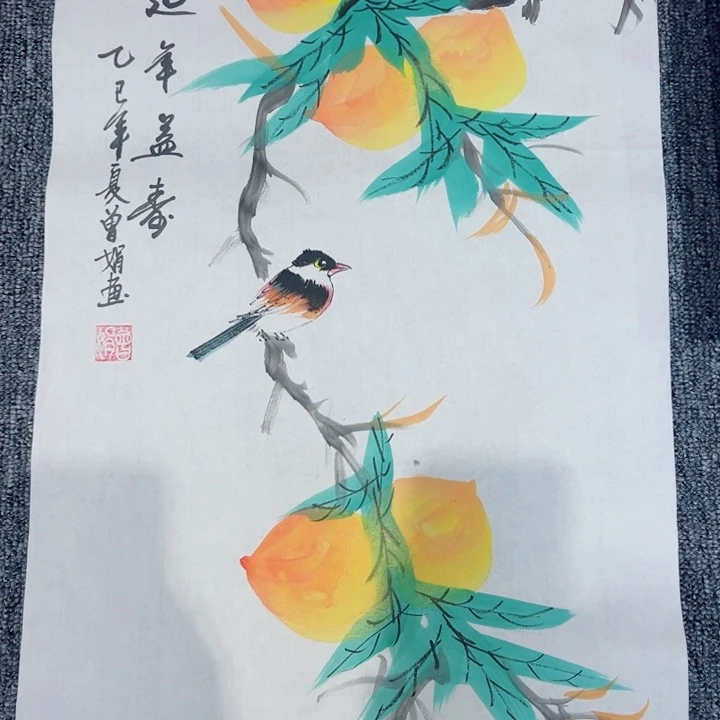 延年益寿
乙巳年夏曾娟画